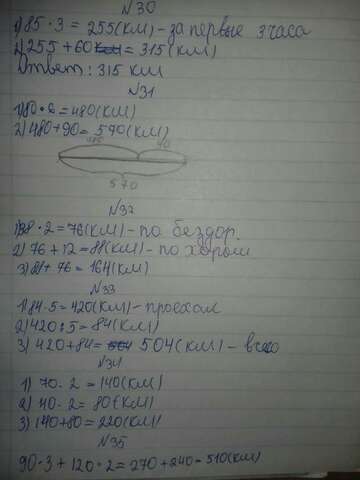 №30
1) 85 · 3 = 255 (км) – за первые 3 часа
2) 255 + 60 = 315 (км)
Ответ: 315 км
№31
1) 80 · 6 = 480 (км)
2) 480 + 90 = 570 (км)
480 90
570
№32
1) 38 · 2 = 76 (км) – по бездор.
2) 76 + 12 = 88 (км) – по хорош
3) 88 + 76 = 164 (км)
№33
1) 84 · 5 = 420 (км) – проехал
2) 420 : 5 = 84 (км)
3) 420 + 84 = 504 (км) –
№34
1) 70 · 2 = 140 (км)
2) 40 · 2 = 80 (км)
3) 140 + 80 = 220 (км)
№35
90 · 3 + 120 · 2 = 270 + 240 = 510 (км)